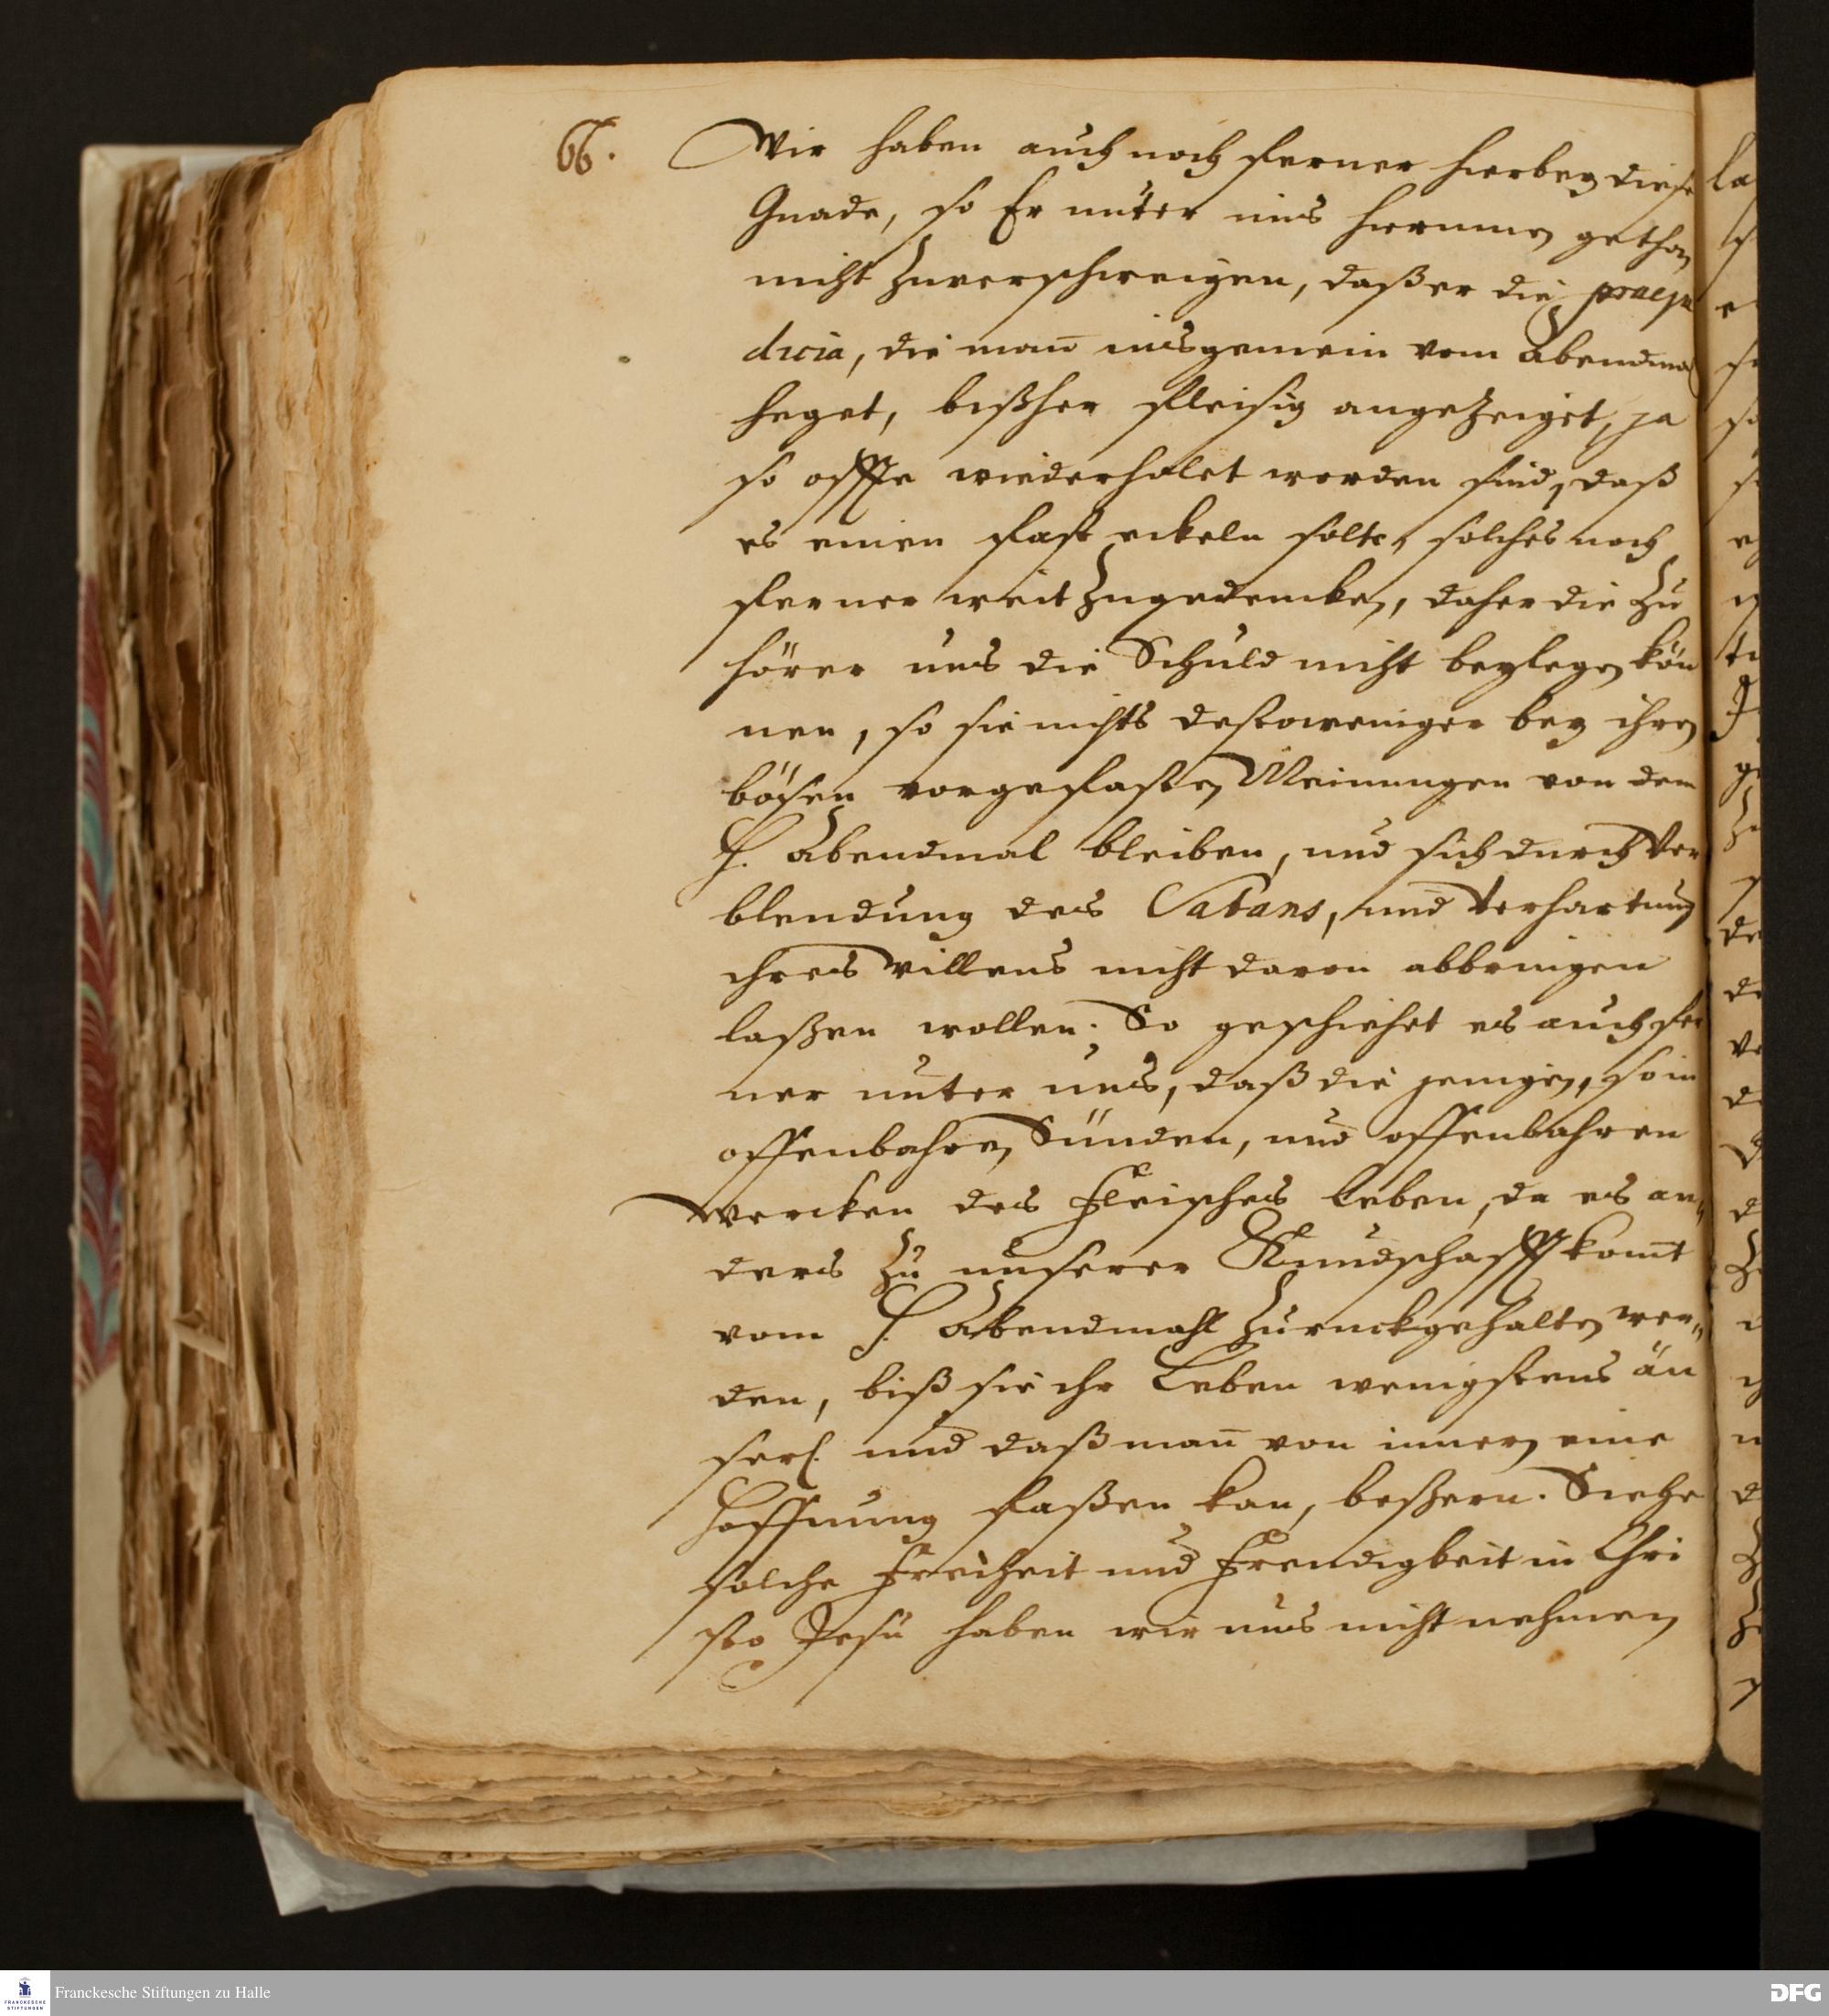 66.
Wir haben auch noch ferner hierbey diese
Gnade, so Er unter uns hierinnen gethan
nicht zuverschweigen, daß er die praeju
dicia, die man insgemein vom Abendmal
heget, bißher fleisig angezeiget, ja
so offte wiederholet worden sind, daß
es einen fast eckeln solte, solches noch
ferner weit zugedencken, daher die Zu
hörer uns die Schuld nicht beylegen kön
nen, so sie nichts destoweniger bey ihren
bösen vorgefasten Meinungen von dem
H. Abendmal bleiben, und sich durch Ver
blendung des Satans, und Verhartung
ihres Willens nicht davon abbringen
laßen wollen. So geschiehet es auch fer
ner unter uns, daß die jenigen, so in
offenbahren Sünden, und offenbahren
Wercken des Fleisches leben, da es an„
ders zu unserer Kundschafft komt
vom H. Abendmahl zurückgehalten wer„
den, biß sie ihr Leben wenigstens äu
serl. und daß man von innern eine
Hoffnung faßen kan, beßern. Siehe
solche Freiheit und Freudigkeit in Chri
sto Jesu haben wir uns nicht nehmen
Franckesche Stiftungen zu Halle
FRANCKESCHE
STIFTUNGEN
DFG